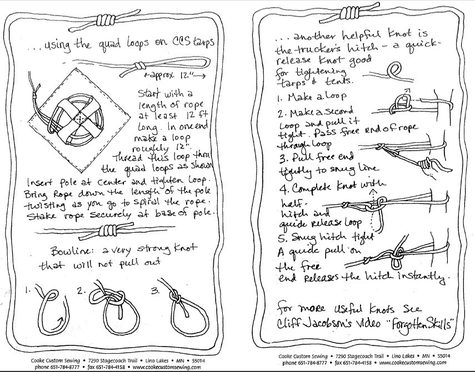 ...using the quad loops on CCS tarps
approx 12"
Start with a
length of rope
at least 12 ft
long. In one end
make a loop
roughly 12".
Thread this loop thru
the quad loops as shown
Insert pole at center and tighten loop.
Bring Rope down the length of the pole
twisting as you go to spiral the rope.
Stake rope securely at base of pole.
Bowline: a very strong knot
that will not pull out
1.
2.
3.
Cooke Custom Sewing • 7290 Stagecoach Trail • Lino Lakes • MN • 55014
phone 651-784-8777 • fax 651-784-4158 • www.cookecustomsewing.com
...another helpful knot is
the trucker's hitch - a quick-
release knot good
for tightening
tarps & tents.
1. Make a loop
2. Make a second
loop and pull it
tight. Pass free end of rope
through loop
3. Pull free end
tightly to snug line
4. Complete knot with
half-
hitch and
quick release loop
5. Snug hitch tight
A quick pull on
the free
end releases the hitch instantly.
for more useful knots see
Cliff Jacobson's video "Forgotten Skills"
Cooke Custom Sewing • 7290 Stagecoach Trail • Lino Lakes • MN • 55014
phone 651-784-8777 • fax 651-784-4158 • www.cookecustomsewing.com